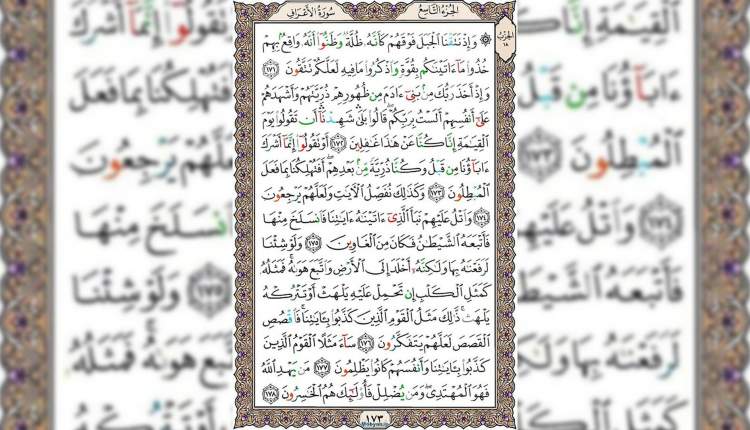 سُورَةُ الأَعْرَافِ
الجُزْءُ التَّاسِعُ
الحِزْبُ ١٨
۞ وَإِذْ نَتَقْنَا ٱلْجَبَلَ فَوْقَهُمْ كَأَنَّهُۥ ظُلَّةٌ وَظَنُّوٓا۟ أَنَّهُۥ وَاقِعٌۢ بِهِمْ
خُذُوا۟ مَآ ءَاتَيْنَٰكُم بِقُوَّةٍ وَٱذْكُرُوا۟ مَا فِيهِ لَعَلَّكُمْ تَتَّقُونَ ١٧١
وَإِذْ أَخَذَ رَبُّكَ مِنۢ بَنِىٓ ءَادَمَ مِن ظُهُورِهِمْ ذُرِّيَّتَهُمْ وَأَشْهَدَهُمْ
عَلَىٰٓ أَنفُسِهِمْ أَلَسْتُ بِرَبِّكُمْ قَالُوا۟ بَلَىٰ شَهِدْنَآ أَن تَقُولُوا۟ يَوْمَ
ٱلْقِيَٰمَةِ إِنَّا كُنَّا عَنْ هَٰذَا غَٰفِلِينَ ١٧٢ أَوْ تَقُولُوٓا۟ إِنَّمَآ أَشْرَكَ
ءَابَآؤُنَا مِن قَبْلُ وَكُنَّا ذُرِّيَّةً مِّنۢ بَعْدِهِمْ أَفَتُهْلِكُنَا بِمَا فَعَلَ
ٱلْمُبْطِلُونَ ١٧٣ وَكَذَٰلِكَ نُفَصِّلُ ٱلْءَايَٰتِ وَلَعَلَّهُمْ يَرْجِعُونَ
١٧٤ وَٱتْلُ عَلَيْهِمْ نَبَأَ ٱلَّذِىٓ ءَاتَيْنَٰهُ ءَايَٰتِنَا فَٱنسَلَخَ مِنْهَا
فَأَتْبَعَهُ ٱلشَّيْطَٰنُ فَكَانَ مِنَ ٱلْغَاوِينَ ١٧٥ وَلَوْ شِئْنَا
لَرَفَعْنَٰهُ بِهَا وَلَٰكِنَّهُۥٓ أَخْلَدَ إِلَى ٱلْأَرْضِ وَٱتَّبَعَ هَوَىٰهُ فَمَثَلُهُۥ
كَمَثَلِ ٱلْكَلْبِ إِن تَحْمِلْ عَلَيْهِ يَلْهَثْ أَوْ تَتْرُكْهُ
يَلْهَث ذَّٰلِكَ مَثَلُ ٱلْقَوْمِ ٱلَّذِينَ كَذَّبُوا۟ بِـَٔايَٰتِنَا فَٱقْصُصِ
ٱلْقَصَصَ لَعَلَّهُمْ يَتَفَكَّرُونَ ١٧٦ سَآءَ مَثَلًا ٱلْقَوْمُ ٱلَّذِينَ
كَذَّبُوا۟ بِـَٔايَٰتِنَا وَأَنفُسَهُمْ كَانُوا۟ يَظْلِمُونَ ١٧٧ مَن يَهْدِ ٱللَّهُ
فَهُوَ ٱلْمُهْتَدِى وَمَن يُضْلِلْ فَأُو۟لَٰٓئِكَ هُمُ ٱلْخَٰسِرُونَ ١٧٨
١٧٣